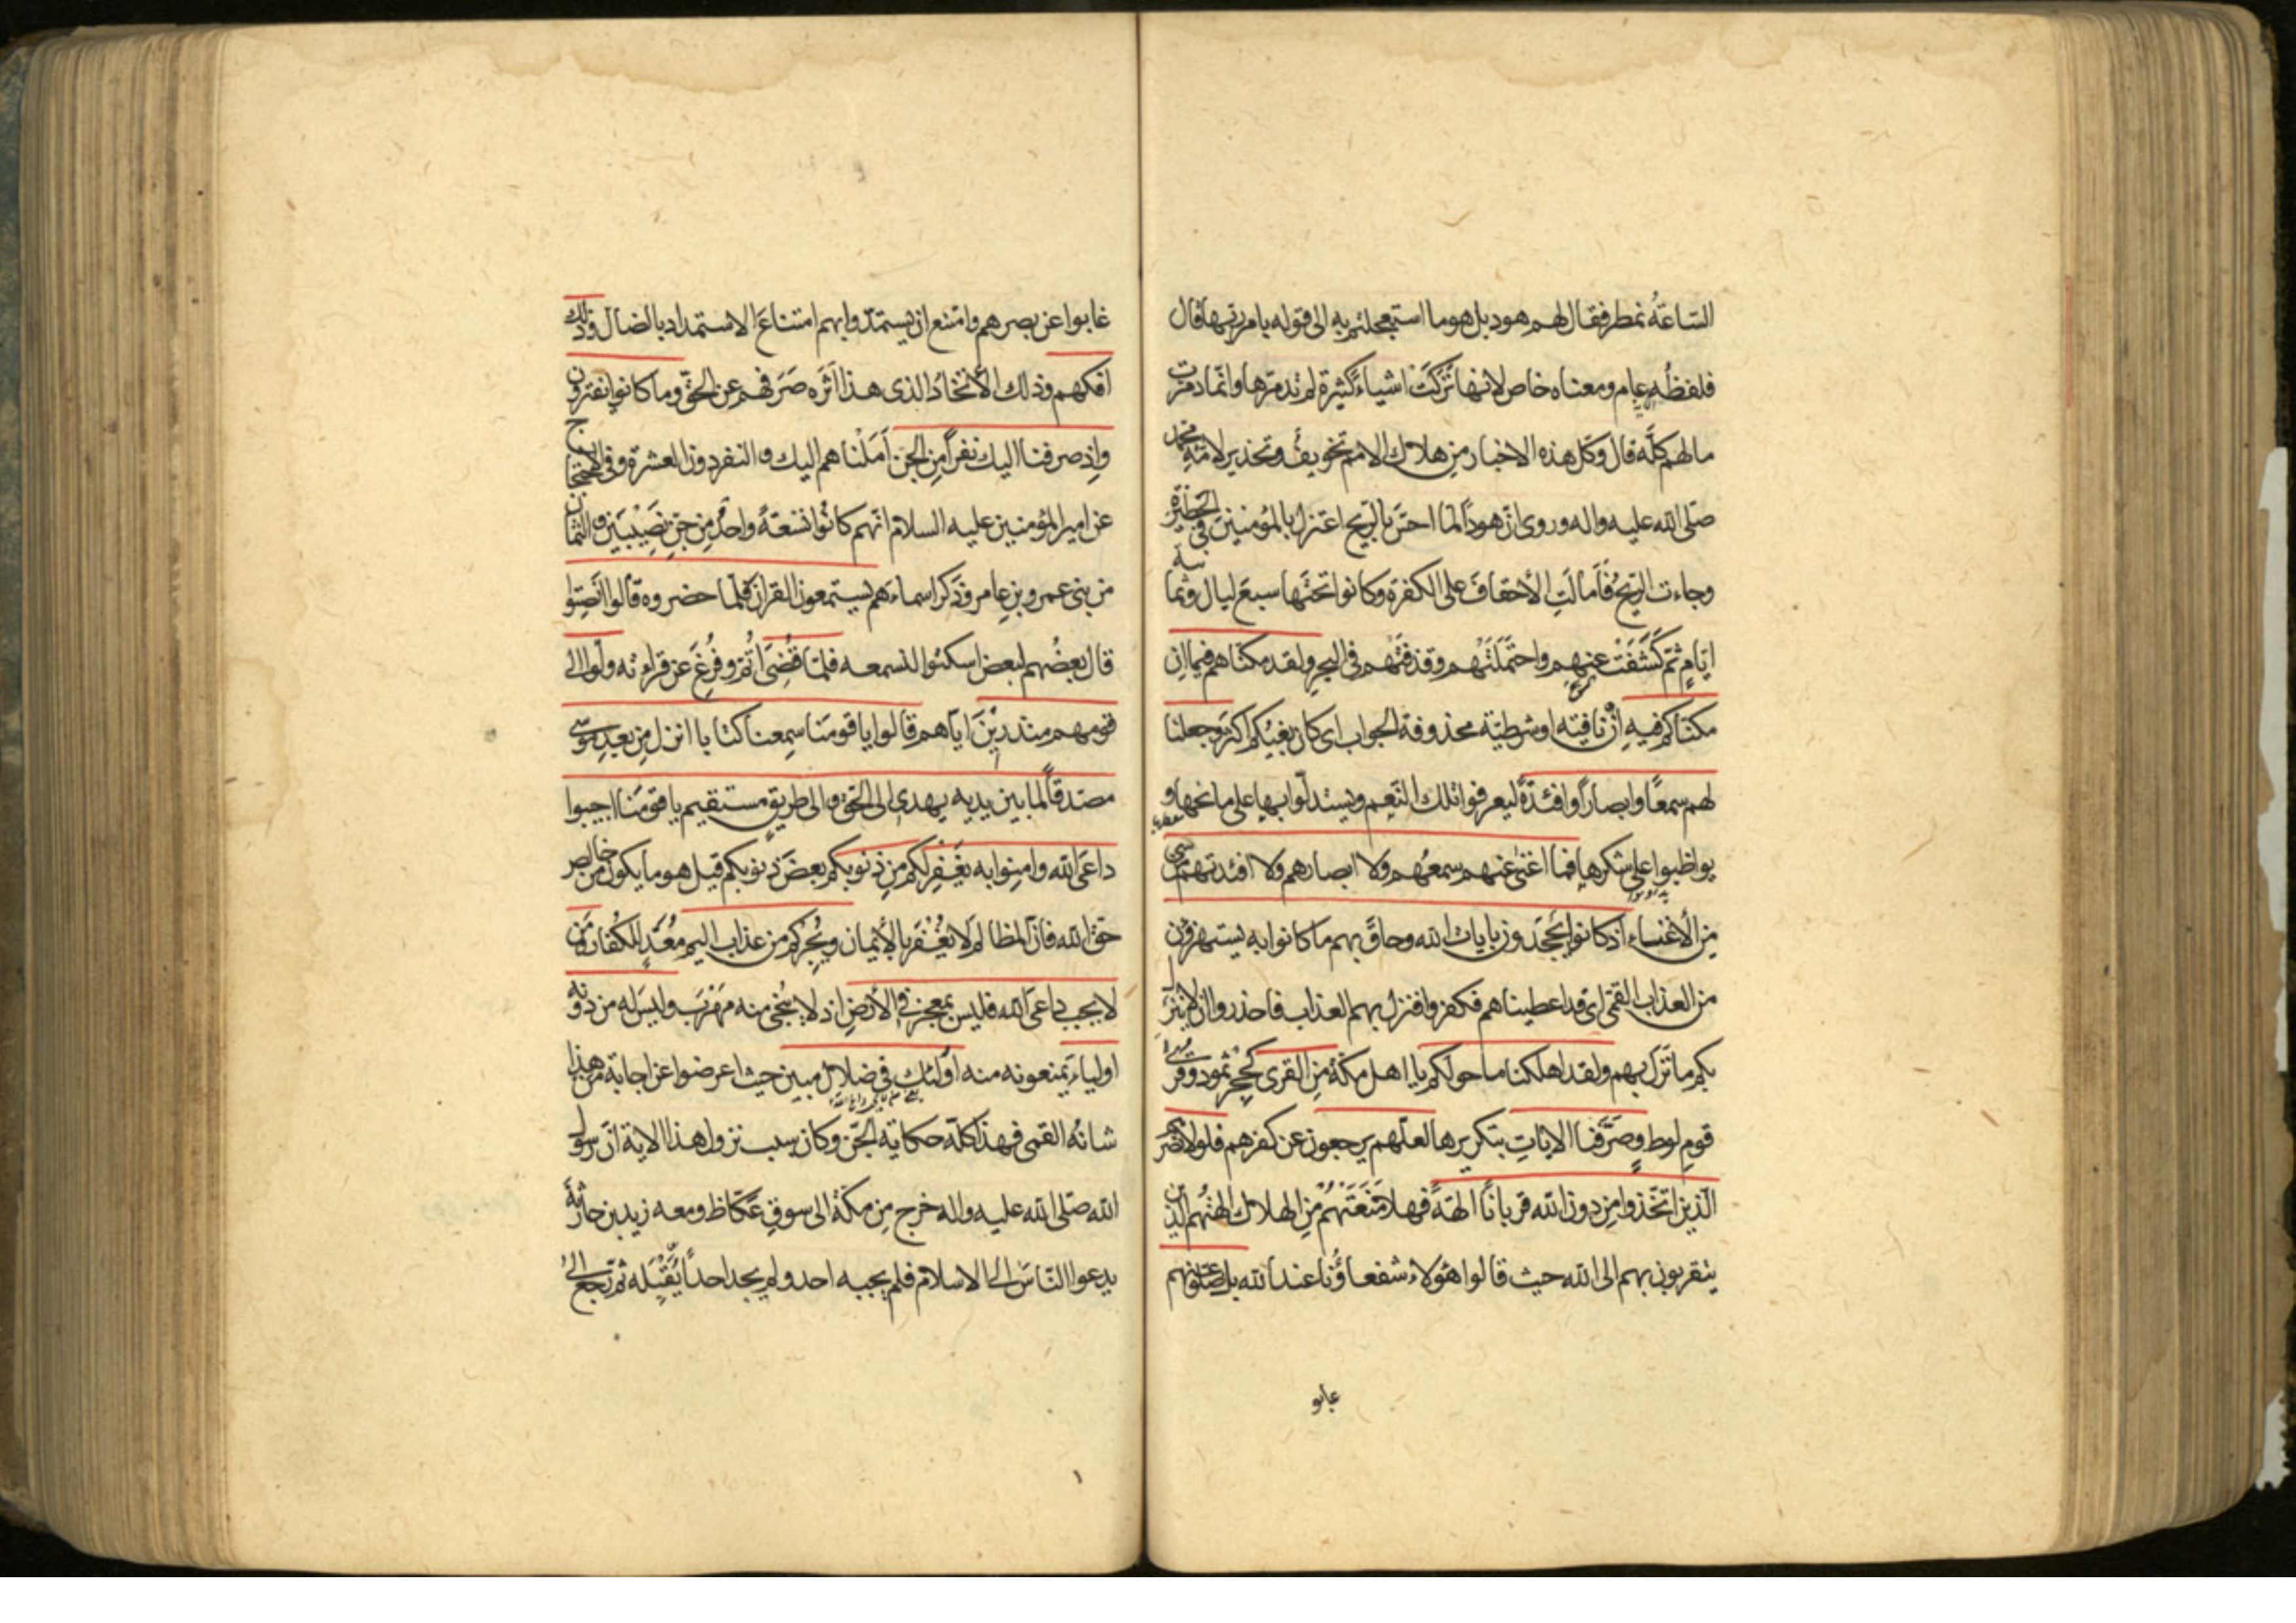 الساعةُ نمطر فقال لهم هود بل هو ما استعجلتم به الى قوله بامر ربها قال
فلفظُه عام ومعناه خاص لانها تَرَكَتْ اشياءَ كثيرة لم تدمّرها وانّما دمّرت
مالهم كلَّه قال وكل هذه الاخبار مِن هلاك الامم تخويفٌ وتحذير لامّةِ محمد
صلى الله عليه واله وروى انّ هوداً لما احسّ بالريح اعتزل بالمؤمنين فى الحظيرة
وجاءت الريحُ فَاَمالَتِ الأحقافَ على الكفرة وكانوا تحتَها سبعَ ليال وثمانية
ايّامٍ ثمّ كَشَفَتْ عنهم واحتَمَلَتْهم وقذفَتْهم فى البحرِ ولقد مكنّاهم فيما اِن
مكنّاكم فيهِ اِنْ نافيته او شرطيّة محذوفة الجواب اى كان بغيُكم اكثر وجعلنا
لهم سمعًا وابصاراً وافئدةً ليعرفوا تلك النّعِم ويستدلّوا بها على مانحها و
يواظبوا على شكرها فما اغنىٰ عنهم سمعُهم ولا ابصارهم ولا افئدتهم من شئ
مِن الأغناء اذ كانوا يجحَدون بايات الله وحاقَ بهم ما كانوا به يستهزؤن
من العذاب القمّى اى قد اعطيناهم فكفروا فنزل بهم العذاب فاحذروا ان لا ينزل
بكم ما نَزَل بهم ولقد اهلكنا ما حولكم يا اهل مكّة مِنَ القرى كحِجْرِ ثمود وقرى
قومِ لوط وصَرَّفنا الاياتِ بتكريرها لعلّهم يرجعون عن كفرهم فلولا نصرهم
الّذين اتّخذوا مِن دون الله قربانًا الهَةً فهلا مَنَعَتْهُمْ مِنِ الهلاك الِهتُهُم الذين
يتقربون بهم الى الله حيث قالوا هَؤلاء شفعاؤُنا عند الله بل ضلّوا عنهم
غابو
غابوا عن بصرهم وامتنع ان يستمدّوا بهم امتناعَ الاستمداد بالضال وذلك
افكهم وذلك الأتخاذُ الذى هذا اَثَره صَرَفهم عن الحقّ وما كانوا يفترون
واِذ صرفنا اليك نفراً مِنَ الجن اَمَلْناهم اليك والنفر دون العشرة وفى الاحتجاج
عن امير المؤمنين عليه السلام انّهم كانُوا تسْعَةً واحدٌ مِن جِنِّ نَصِيْبَين والثمان
من بنى عمرو بن عامر وذَكَر اسماءَهم يستمعون القران فلمّا حضروه قالوا اَنْصِتوا
قال بعضُهم لبعض اسكتوا لنسمعه فلمّا قُضِىَ اُتِمّ وفُرِغَ عن قراءته ولّوا الى
قومهم منذريْنَ ايّاهم قالوا يا قومَنا سِمِعنا كتابا انزل مِن بعدِ موسى
مصدقاً لما بين يديه يهدى الى الحَقّ والى طريق مستقيم يا قومَنا اجيبوا
داعَى الله وامِنوا به يَغْفِر لكم مِن ذنوبكم بعضَ ذنوبكم قيل هو ما يكون من خالص
حق الله فانّ المظالم لا تُغْفَر بالأيمان ويُجِرْكم من عذاب اليم مُعَدٍّ للكفار ومَن
لا يجب داعى الله فليس بمعجز فى الأرضِ اذ لا يُنْجى منه مَهْرَب وليسَ له من دونه
اولياءَ يمنعونه منه اولئك فى ضلالٍ مبين حيث اعرضوا عن اجابة من هذا
شانُه القمى فهذا كلّه حكاية الجنّ وكان سبب نزول هذا الاية انّ رسول
الله صلّى الله عليه واله خرج مِن مكّة الى سوقِ عكاظ ومعه زيد بن حارثة
يدعوا النّاسَ الى الاسلام فلم يُجبه احد ولم يجد احداً يَقْبَله ثم رجع الى